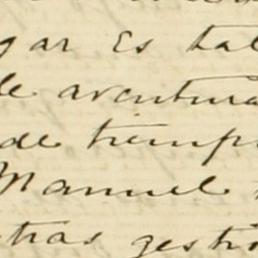 gar Es tal
de aventura
de tiemp
Manuel
tras gesti